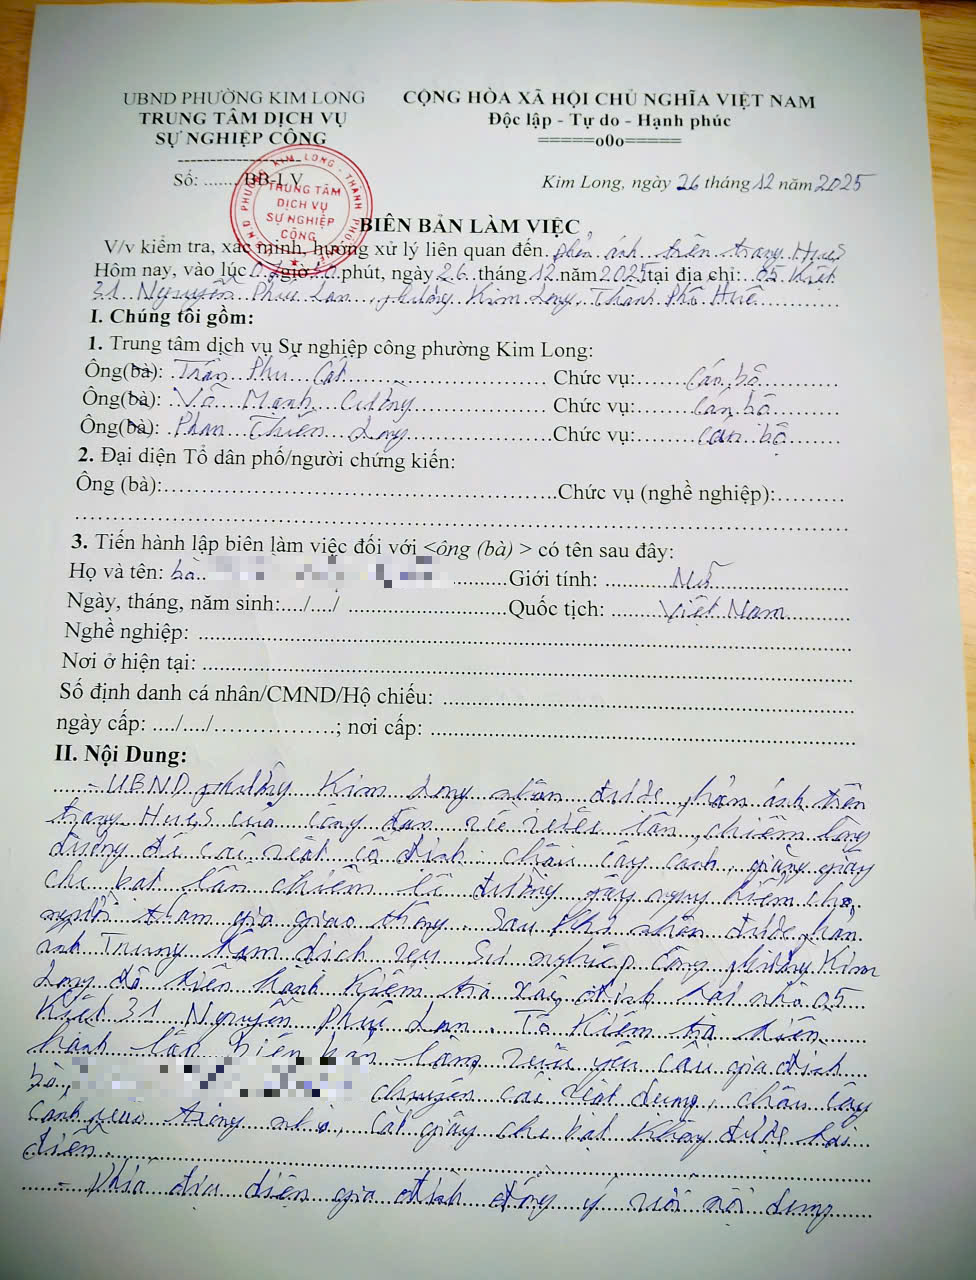 UBND PHƯỜNG KIM LONG
TRUNG TÂM DỊCH VỤ
SỰ NGHIỆP CÔNG
CỘNG HÒA XÃ HỘI CHỦ NGHĨA VIỆT NAM
Độc lập - Tự do - Hạnh phúc
=====o0o=====
Số: ....... /BB-LV
TRUNG TÂM
DỊCH VỤ
SỰ NGHIỆP
CÔNG
Kim Long, ngày 26 tháng 12 năm 2025
BIÊN BẢN LÀM VIỆC
V/v kiểm tra, xác minh, hướng xử lý liên quan đến phản ánh trên trang HueS
Hôm nay, vào lúc giờ phút, ngày 26 tháng 12 năm 2025 tại địa chỉ: 05 Kiệt
31 Nguyễn Phúc Lan, phường Kim Long, Thành Phố Huế
I. Chúng tôi gồm:
1. Trung tâm dịch vụ Sự nghiệp công phường Kim Long:
Ông(bà): Trần Phú Cát Chức vụ: Cán bộ
Ông(bà): Võ Mạnh Cường Chức vụ: Cán bộ
Ông(bà): Phan Thiên Long Chức vụ: Cán bộ
2. Đại diện Tổ dân phố/người chứng kiến:
Ông (bà):.......... Chức vụ (nghề nghiệp):.........
3. Tiến hành lập biên làm việc đối với <ông (bà) > có tên sau đây:
Họ và tên: bà Giới tính: Nữ
Ngày, tháng, năm sinh:.../.../ .......... Quốc tịch: Việt Nam
Nghề nghiệp: ..........
Nơi ở hiện tại: ..........
Số định danh cá nhân/CMND/Hộ chiếu: ..........
ngày cấp: ..../..../...............; nơi cấp: ..........
II. Nội Dung:
- UBND phường Kim Long nhận được phản ánh trên
trang HueS của công dân về việc lấn chiếm lòng
đường để cái vật cố định chậu cây cảnh, giăng giây
che bạt lấn chiếm lề đường gây nguy hiểm cho
người tham gia giao thông. Sau khi nhận được phản
ánh Trung tâm dịch vụ Sự nghiệp Công phường Kim
Long đã tiến hành kiểm tra xác định tại nhà 05
Kiệt 31 Nguyễn Phúc Lan. Tổ kiểm tra tiến
hành lập biên bản làm việc yêu cầu gia đình
bà chuyển cái vật dụng, chậu cây
cảnh vào trong nhà, cắt giây che bạt không được tái
diễn.
- Phía đại diện gia đình đồng ý với nội dung